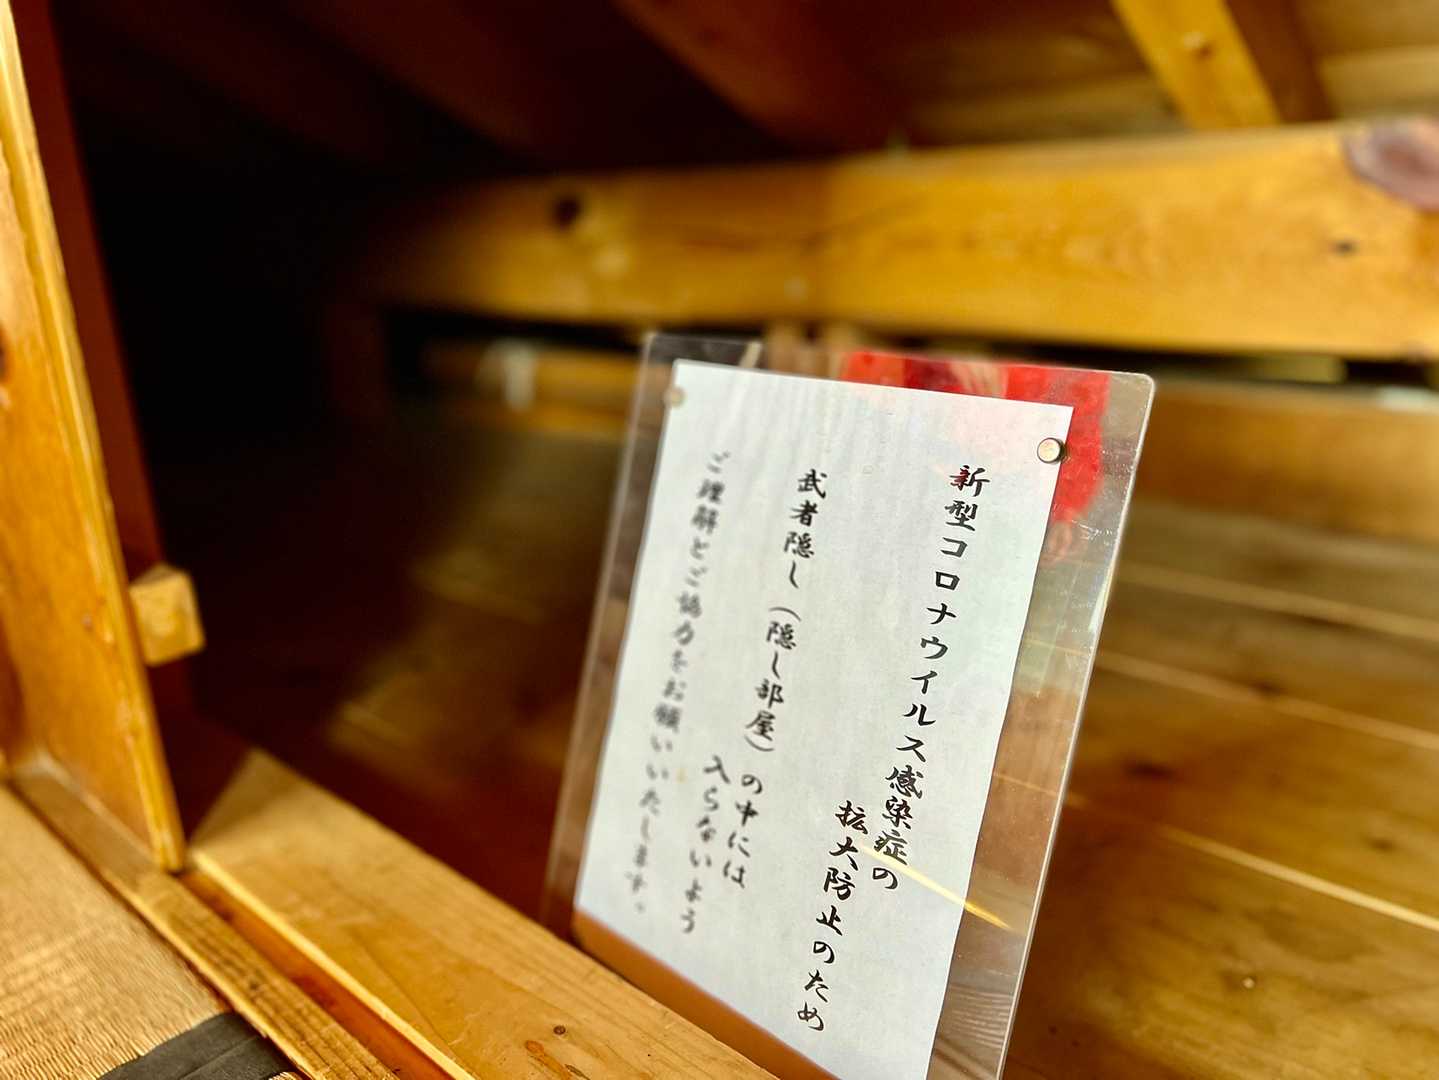 新型コロナウイルス感染症の
拡大防止のため
武者隠し（隠し部屋）の中には
入らないよう
ご理解とご協力をお願いいたします。